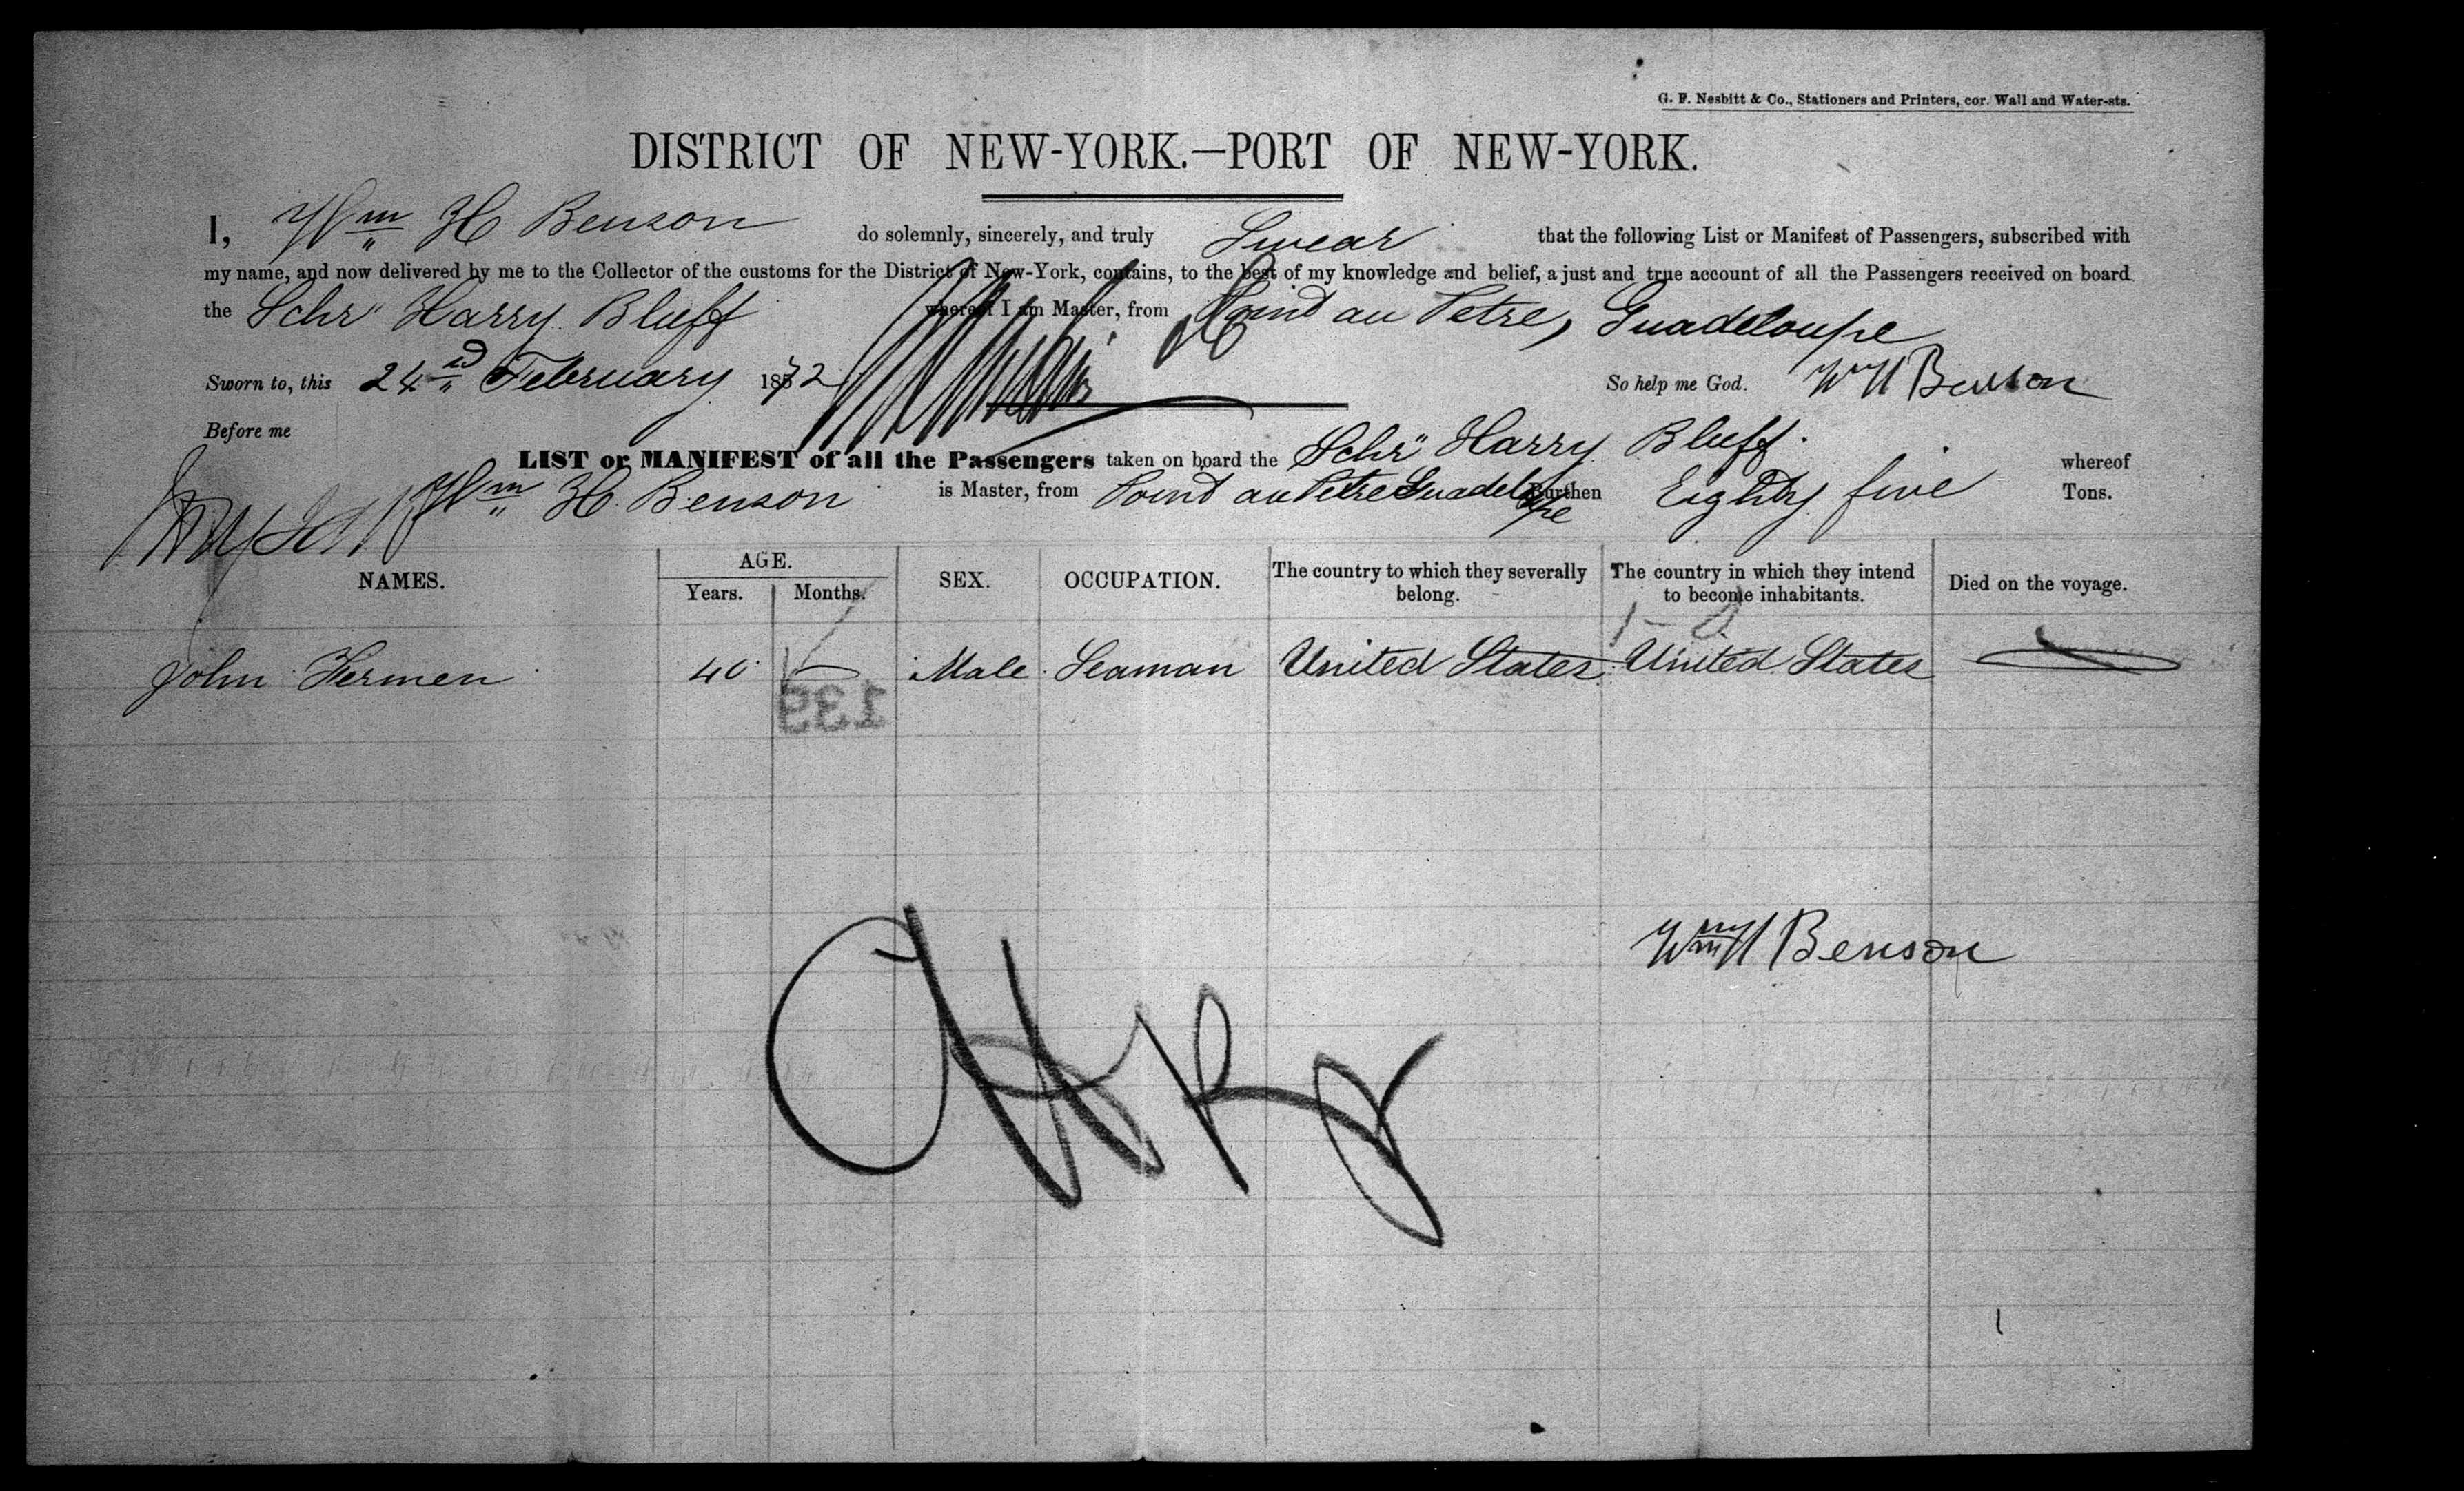 G. F. Nesbitt & Co., Stationers and Printers, cor. Wall and Water-sts.
DISTRICT OF NEW-YORK.—PORT OF NEW-YORK.
I, Wm H Benson do solemnly, sincerely, and truly Swear that the following List or Manifest of Passengers, subscribed with
my name, and now delivered by me to the Collector of the customs for the District of New-York, contains, to the best of my knowledge and belief, a just and true account of all the Passengers received on board
the Schr Harry Bluff whereof I am Master, from Point au Petre, Guadeloupe
Sworn to, this 24th February 1872 So help me God. Wm H Benson
Before me
LIST or MANIFEST of all the Passengers taken on board the Schr Harry Bluff. whereof
Wm H. Benson is Master, from Point au Petre Guadeloupe Burthen Eighty five Tons.
NAMES. AGE. Years. Months. SEX. OCCUPATION. The country to which they severally belong. The country in which they intend to become inhabitants. Died on the voyage.
John Hermen 40 Male Seaman United States United States
133
Wm H Benson